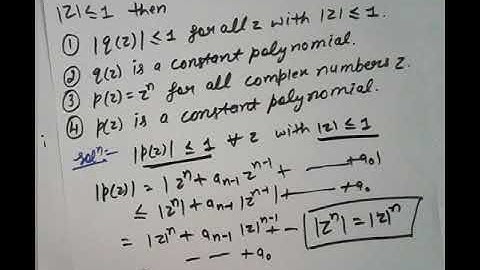 |z| ≤ 1 then
① |q(z)| ≤ 1 for all z with |z| ≤ 1.
② q(z) is a constant polynomial.
③ p(z) = zⁿ for all complex numbers z.
④ p(z) is a constant polynomial.
solⁿ:- |p(z)| ≤ 1 ∀ z with |z| ≤ 1
|p(z)| = |zⁿ + aₙ₋₁ zⁿ⁻¹ + —— + a₀|
≤ |zⁿ| + aₙ₋₁ |zⁿ⁻¹| + —— + a₀
= |z|ⁿ + aₙ₋₁ |z|ⁿ⁻¹ + - |zⁿ| = |z|ⁿ
— — + a₀